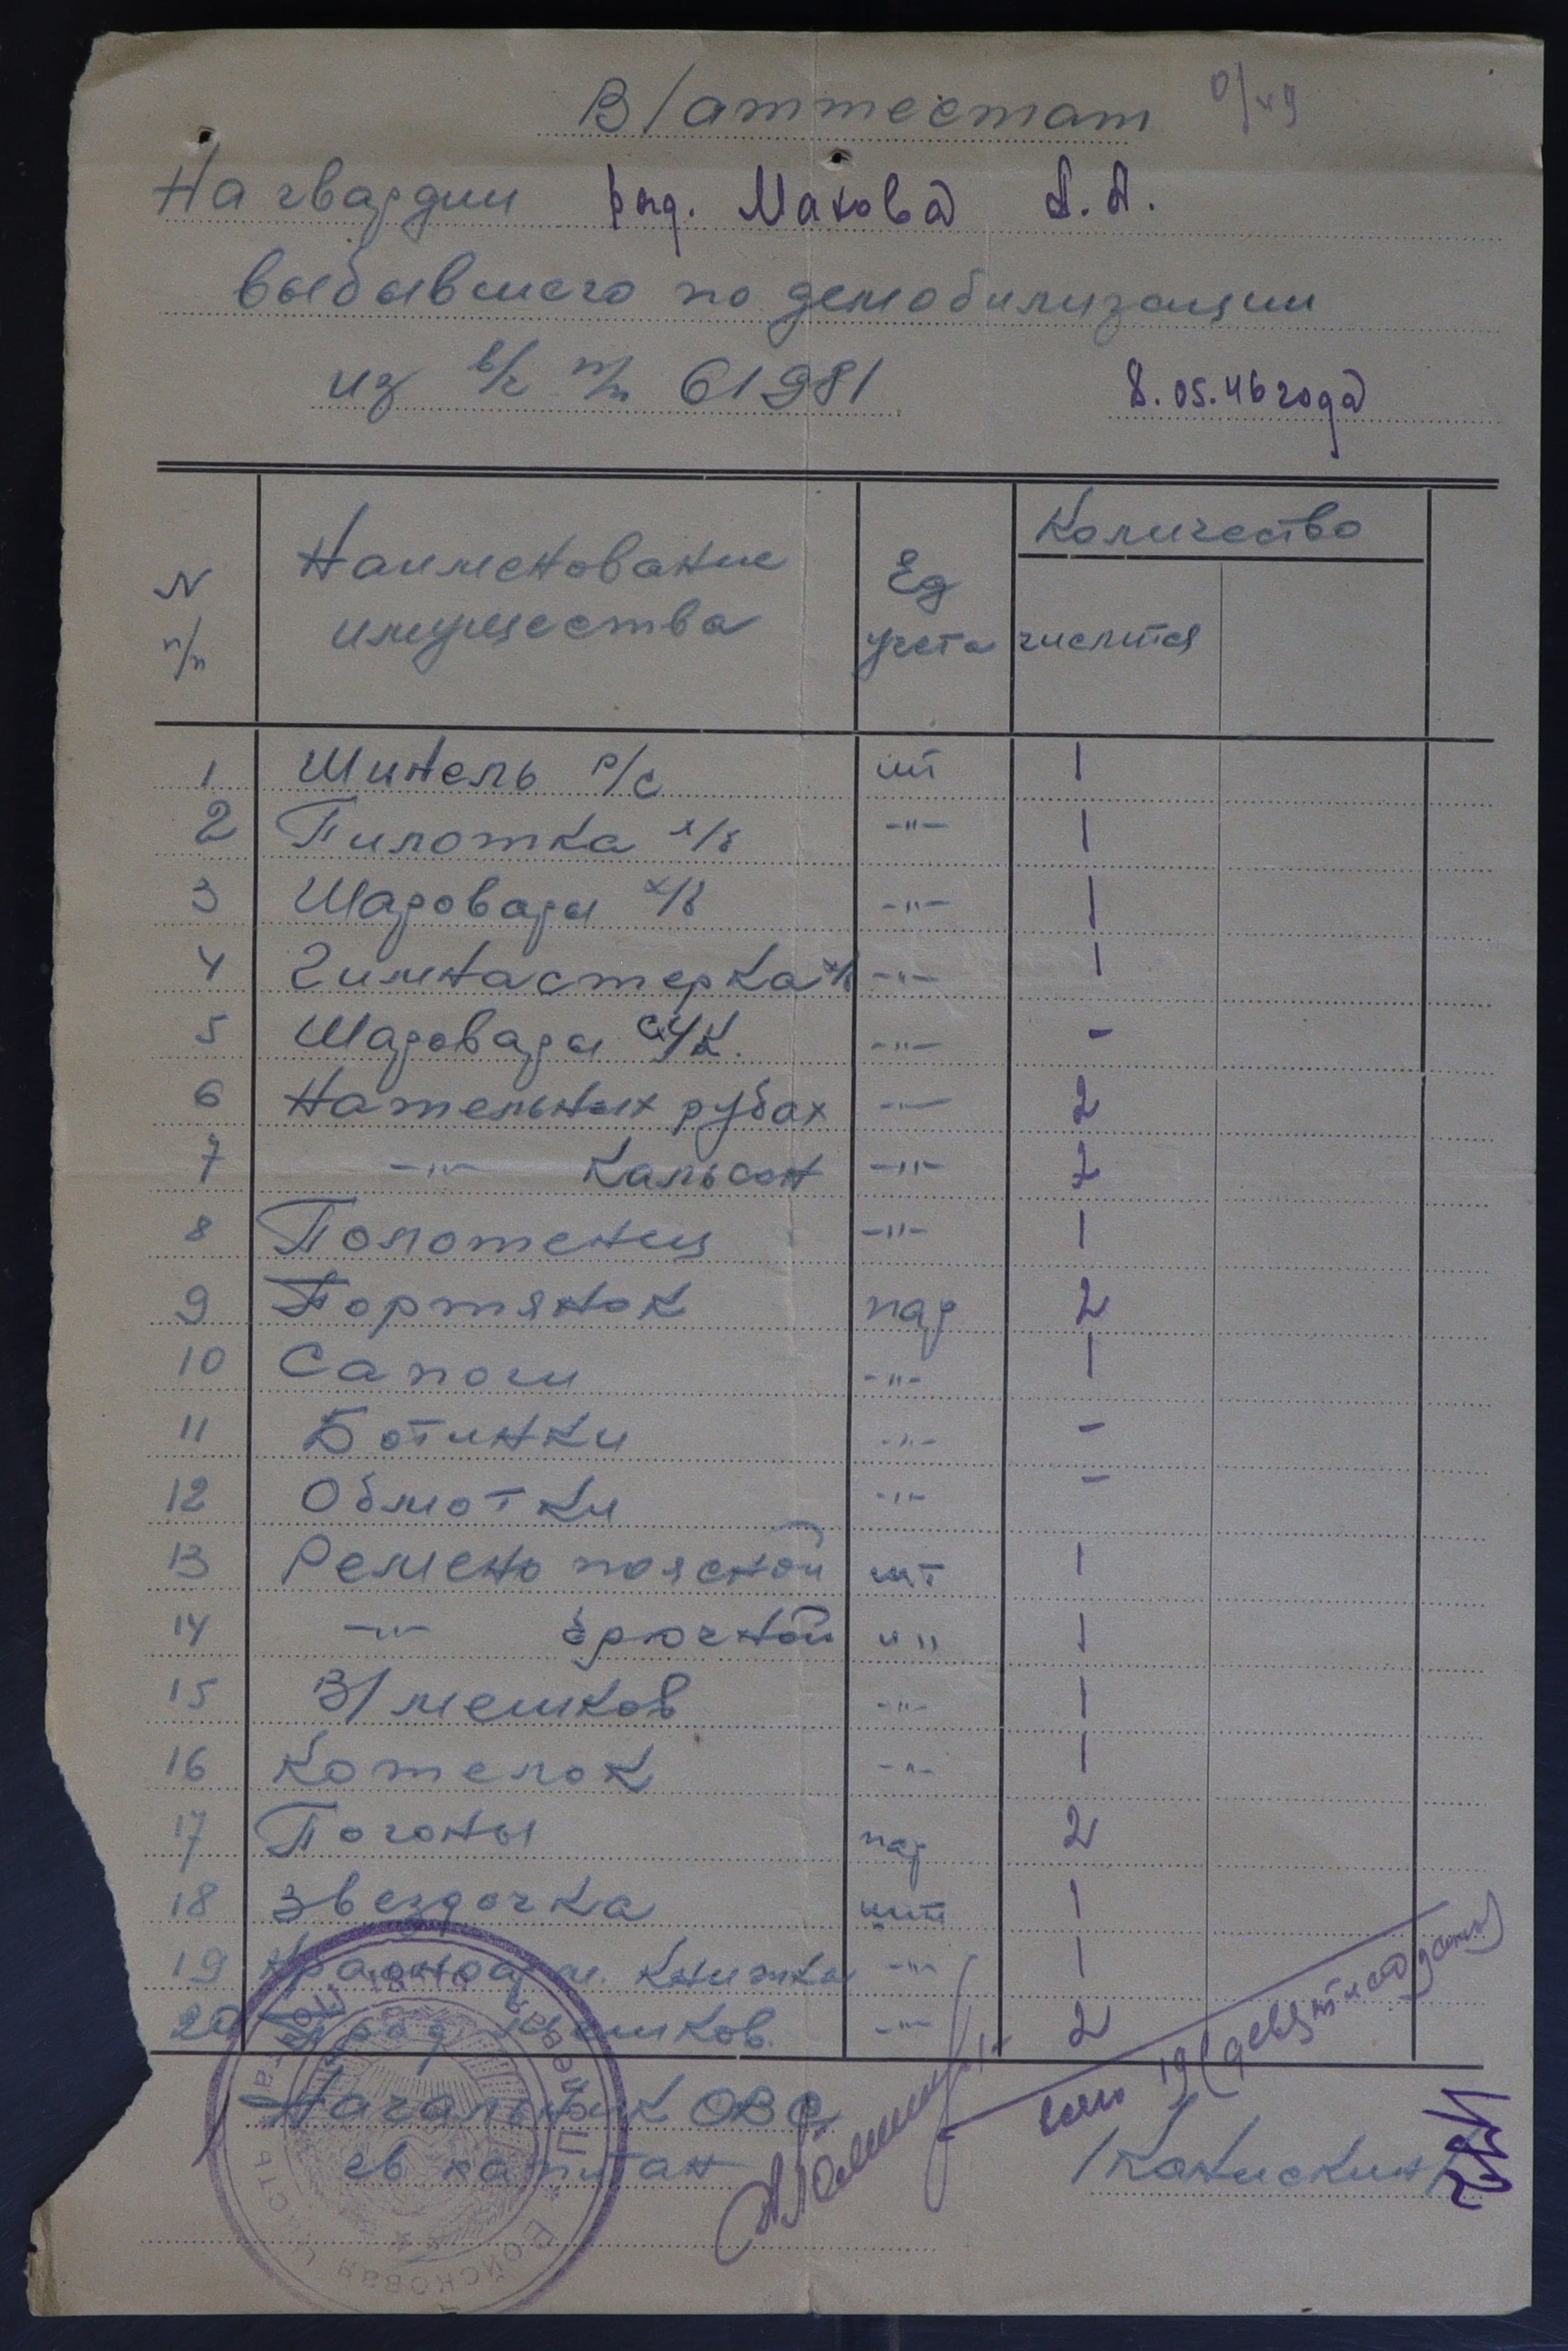 В/аттестат
На гвардии ряд. Махова А.А.
выбывшего по демобилизации
из в/ч п/п 61981 8.05.46 года
N п/п Наименование имущества Ед учета Количество числится
1 Шинель р/с шт 1
2 Пилотка х/б -"- 1
3 Шаровары х/б -"- 1
4 Гимнастерка х/б -"- 1
5 Шаровары -"- -
6 Нательных рубах -"- 2
7 -"- Кальсон -"- 2
8 Полотенец -"- 1
9 Портянок пар 2
10 Сапоги -"- 1
11 Ботинки -"- -
12 Обмотки -"- -
13 Ремень поясной шт 1
14 -"- брючной -"- 1
15 В/мешков -"- 1
16 Котелок -"- 1
17 Погоны пар 2
18 Звездочка шт 1
19 Красноарм. Книжка -"- 1
20 Прод мешков. -"- 2
Начальник ОВС
гв капитан
Полевая почта
Войсковая часть